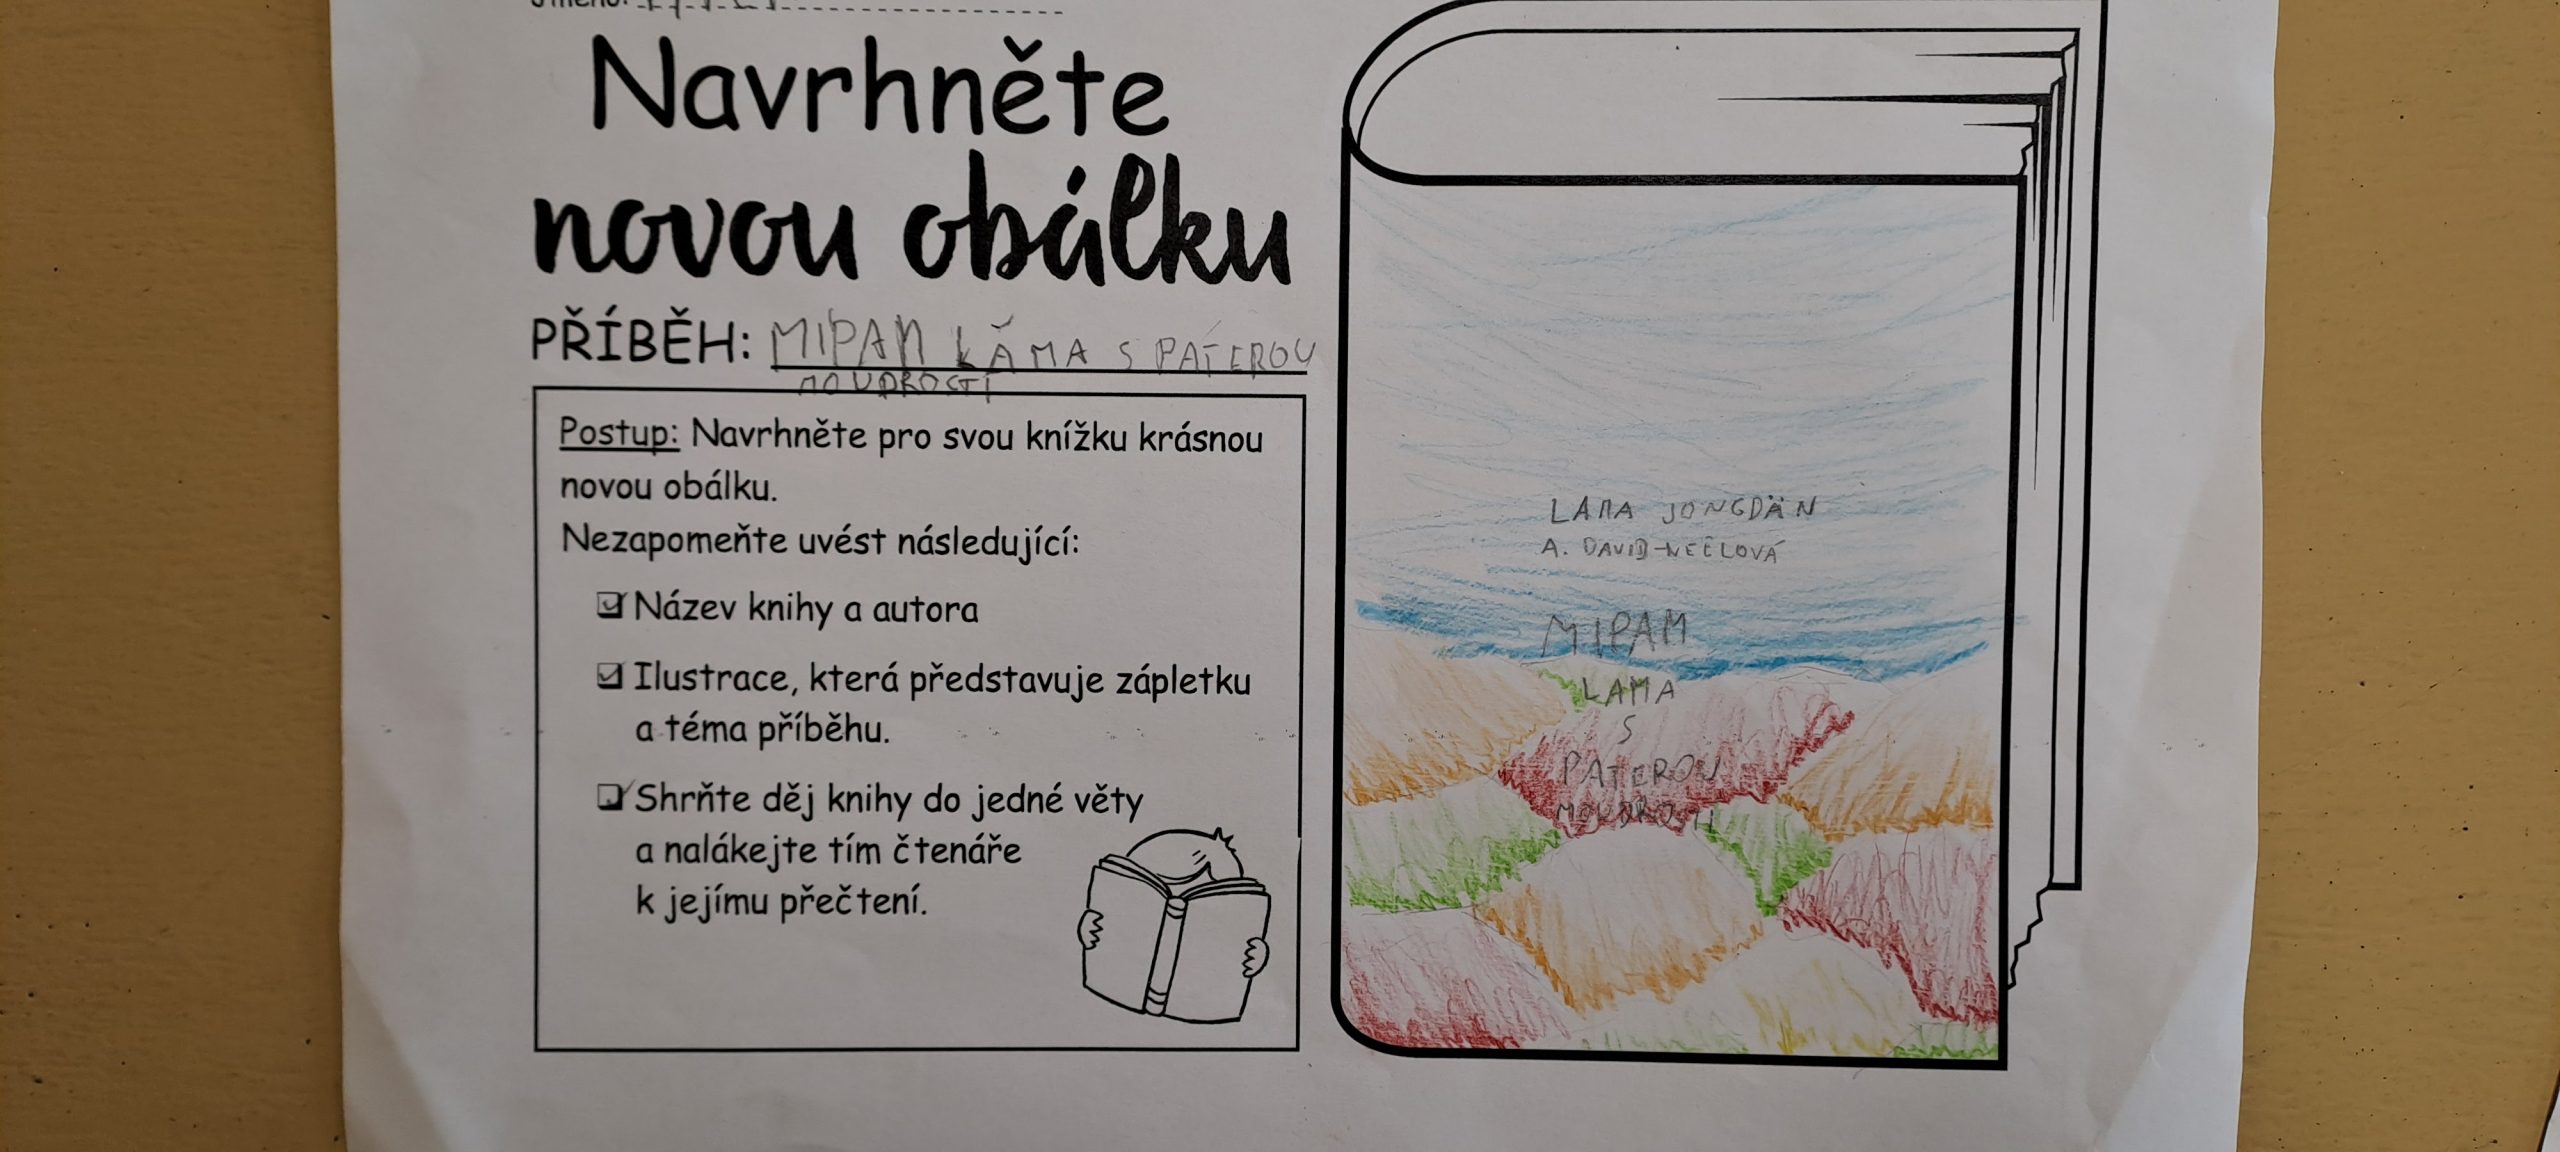 Jméno:
Navrhněte
novou obálku
PŘÍBĚH: MIPAN LÁMA S PATEROU
MOUDROSTÍ
Postup: Navrhněte pro svou knížku krásnou
novou obálku.
Nezapomeňte uvést následující:
Název knihy a autora
Ilustrace, která představuje zápletku
a téma příběhu.
Shrňte děj knihy do jedné věty
a nalákejte tím čtenáře
k jejímu přečtení.
LAMA JONGDÄN
A. DAVID-NEELOVÁ
MIPAM
LAMA
S
PATEROU
MOUDROSTÍ